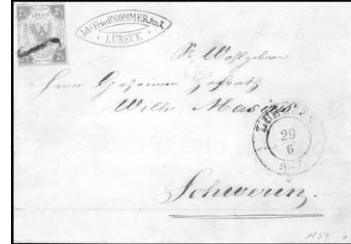 Joh. Fried. NOMMER. jun.
LÜBECK
Sr. Wohlgeboren
Herrn Geheimen Hofrath
Wilh. Masius
29
6
Schwerin.
1859